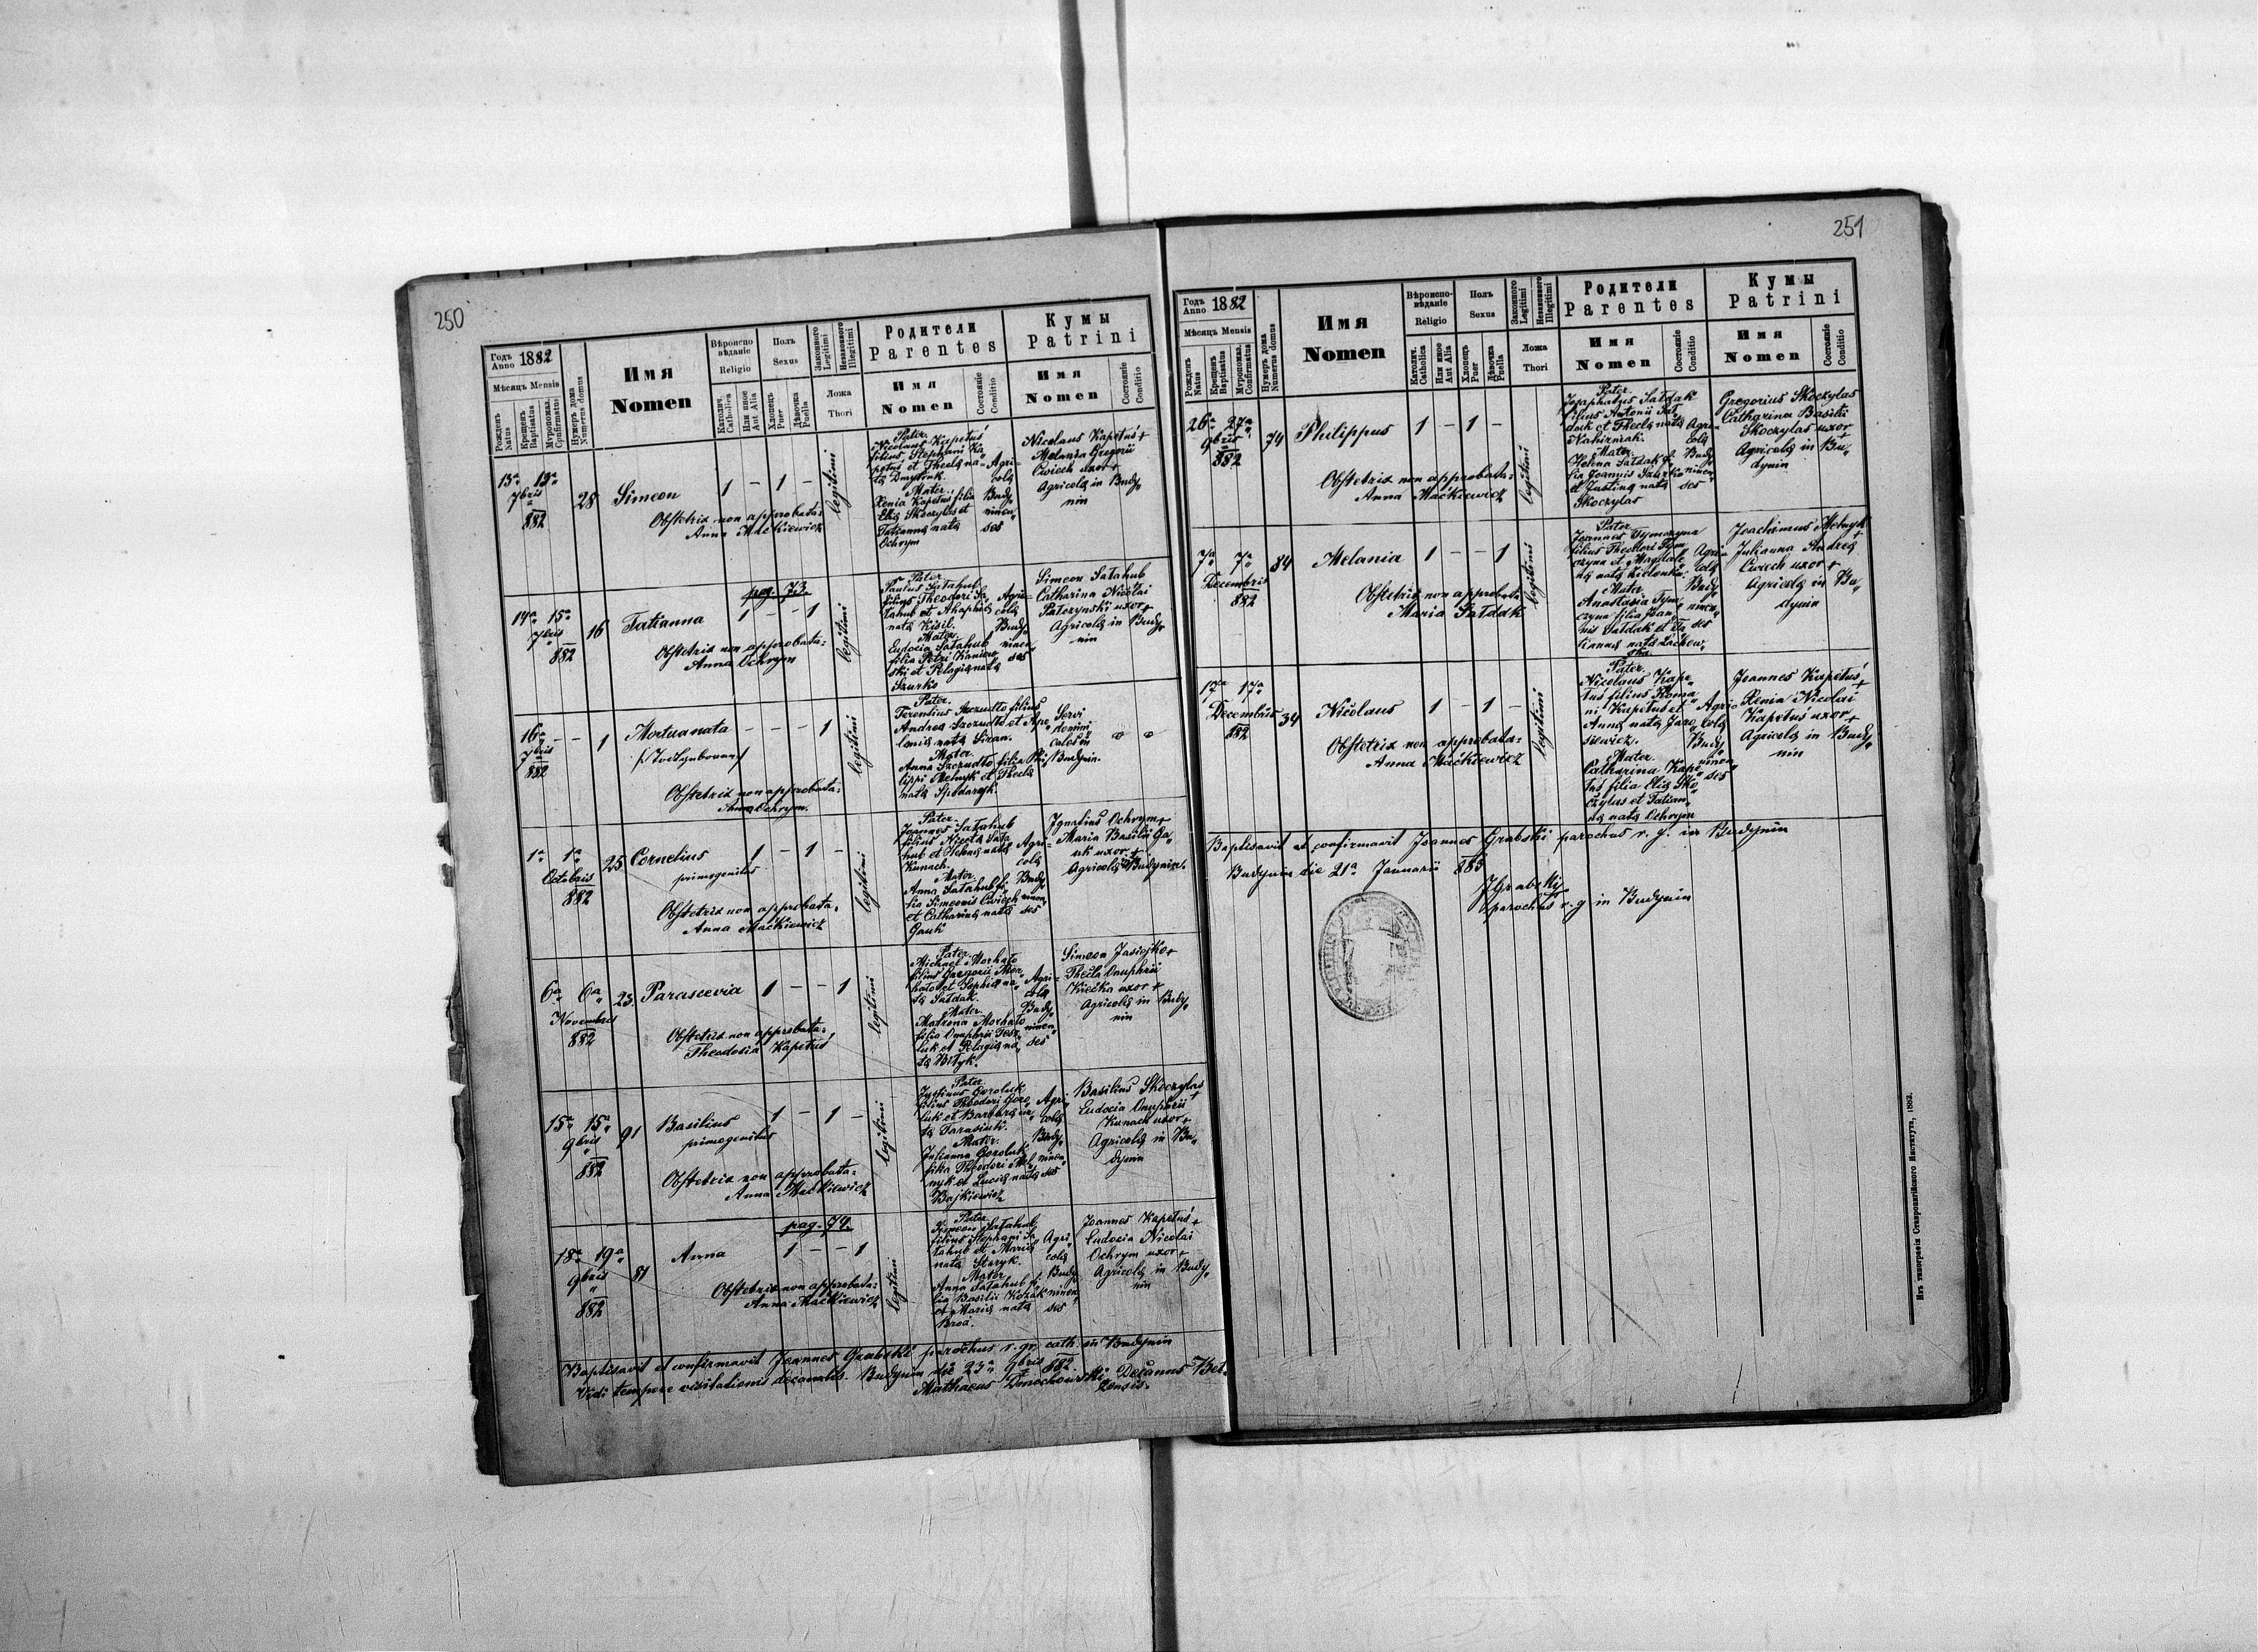 250
Годъ Anno 1882
Мѣсяцъ Mensis
Рожденъ Natus
Крещенъ Baptisatus
Мѵропомаз. Confirmatus
Нумеръ дома Numerus domus
Имя
Nomen
Вѣроиспо
вѣданіе
Religio
Католич. Catholica
Или иное Aut Alia
Полъ
Sexus
Хлопецъ Puer
Дѣвочка Puella
Законного Legitimi
Незаконного Illegitimi
Ложа
Thori
Родители
Parentes
Имя
Nomen
Состояніе Conditio
Кумы
Patrini
Имя
Nomen
Состояніе Conditio
13a 13a
7bris
882
28
Simeon
1 - 1 -
legitimi
Obstetrix non approbata:
Anna Maćkiewicz
Pater
Nicolaus Kapetuś
filius Stephani Ka
petuś et Theclą na
tą Dmytruk.
Mater.
Xenia Kapetuś filia
Elią Skoczylas et
Tatianną natą
Ochrym
Agri
colą
Budy
ninen
ses
Nicolaus Kapetuś +
Melania Gregorii
Cwiech uxor +
Agricolą in Budy
nin
pag. 73.
14a 15a
7bris
882
16
Tatianna
1 - - 1
legitimi
Obstetrix non approbata:
Anna Ochrym
Pater
Paulus Sałahub
filius Theodori Sa
łahub et Ahaphią
natą Kisil.
Mater
Eudocia Sałahub
filia Petri Kaniow
ski et Pelagią natą
Szurko
Agri
colą
Budy
ninen
ses
Simeon Sałahub
Catharina Nicolai
Pałczynski uxor +
Agricolą in Budy
nin
16a - -
7bris
882
1
Mortua nata
- - - 1
legitimi
Obstetrix non approbata:
Anna Ochrym.
Pater.
Terentius Szczudło filius
Andreą Szczudło et Apo
lonią natą Siran.
Mater.
Anna Szczudło filia Phi
lippi Melnyk et Theclą
natą
Servi
domini
cales in
Budynin.
1a 1a
Octobris
882
25
Cornelius
primogenitus
1 - 1 -
legitimi
Obstetrix non approbata:
Anna Maćkiewicz
Pater.
Joannes Sałahub
filius Nicolą Sała
hub et Helena natą
Kunach.
Mater
Anna Sałahub fi
lia Simeonis Cwiech
et Catharina natą
Gauk
Agri
colą
Budy
ninen
ses
Ignatius Ochrym +
Maria Basilii Ga
uk uxor +
Agricolą in Budynin.
6a 6a
Novembris
882
23.
Parascevia
1 - - 1
legitimi
Obstetrix non approbata:
Theodosia Kapetuś
Pater
Michael Morhato
filius Gregorii Mor
hato et Sophią na
tą Sałdak.
Mater
Matrona Morhato
filia Onuphrii
luk et Pelagią na
tą Bityk.
Agri
colą
Budy
ninen
ses
Simeon Jasiejko +
Thecla Onuphrii
Kiećka uxor +
Agricolą in Budy
nin
15a 15a
9bris
882
91
Basilius
primogenitus
1 - 1 -
legitimi
Obstetrix non approbata:
Anna Maćkiewicz
Pater
Justinus Goroluk
filius Theodori Goro
luk et Barbara na
tą Tarasiuk.
Mater.
Julianna Goroluk
filia Theodori Mel
nyk et Lucią natą
Bajkiewicz
Agri
colą
Budy
ninen
ses
Basilius Skoczylas
Eudocia Onuphrii +
Kunach uxor +
Agricolą in Bu
dynin
pag. 74.
18a 19a
9bris
882
81
Anna
1 - - 1
legitimi
Obstetrix non approbata:
Anna Maćkiewicz
Pater
Simeon Sałahub
filius Stephani Sa
łahub et Marią
natą Staryk.
Mater
Anna Sałahub fi
lia Basilii Kozak
et Marią natą
Agri
colą
Budy
ninen
ses
Joannes Kapetuś +
Eudocia Nicolai
Ochrym uxor +
Agricolą in Budy
nin
Baptisavit et confirmavit Joannes Grabski parochus r. gr. cath. in Budynin
Vidi tempore visitationis decanalis. Budynin die 23a 9bris 882.
Matthaeus Decanus Bel
zensis.
251
Годъ Anno 1882
Мѣсяцъ Mensis
Рожденъ Natus
Крещенъ Baptisatus
Мѵропомаз. Confirmatus
Нумеръ дома Numerus domus
Имя
Nomen
Вѣроиспо-
вѣданіе
Religio
Католич. Catholica
Или иное Aut Alia
Полъ
Sexus
Хлопецъ Puer
Дѣвочка Puella
Законного Legitimi
Незаконного Illegitimi
Ложа
Thori
Родители
Parentes
Имя
Nomen
Состояніе Conditio
Кумы
Patrini
Имя
Nomen
Состояніе Conditio
26a 27a
9bris
882
74
Philippus
1 - 1 -
legitimi
Obstetrix non approbata:
Anna Maćkiewicz
Pater
Josaphatus Sałdak
filius Antonii Sał
dak et Theclą natą
Nahirniak.
Mater
Helena Sałdak fi
lia Joannis Szurko
et Justiną natą
Skoczylas
Agri
colą
Budy
ninen
ses
Gregorius Skoczylas
Catharina Basilii
Skoczylas uxor +
Agricolą in Bu
dynin
7a 7a
Decembris
882
84
Melania
1 - - 1
legitimi
Obstetrix non approbata
Maria Sałdak
Pater
Joannes Tymczyna
filius Theodori Tym
czyna et Magdale
ną natą Zielonka.
Mater
Anastasia Tym
czyna filia Joan
nis Sałdak et Ta
tianną natą Lachow
ska
Agri
colą
Budy
ninen
ses
Joachimus Melnyk
Julianna Andreą +
Cwiech uxor +
Agricolą in Bu
dynin
17a 17a
Decembris
882
34
Nicolaus
1 - 1 -
legitimi
Obstetrix non approbata:
Anna Maćkiewicz
Pater
Nicolaus Kape
tuś filius Roma
ni Kapetuś et
Anną natą Jaro
siewicz.
Mater
Catharina Kape
tuś filia Elią Sko
czylas et Tatian
ną natą Ochrym
Agri
colą
Budy
ninen
ses
Joannes Kapetuś +
Xenia Nicolai
Kapetuś uxor +
Agricolą in Budy
nin
Baptisavit et confirmavit Joannes Grabski parochus r. g. in Budynin
Budynin die 21a Januarii 883
JGrabski
parochus r. g in Budynin
Изъ типографіи Ставропигійского Института, 1882.